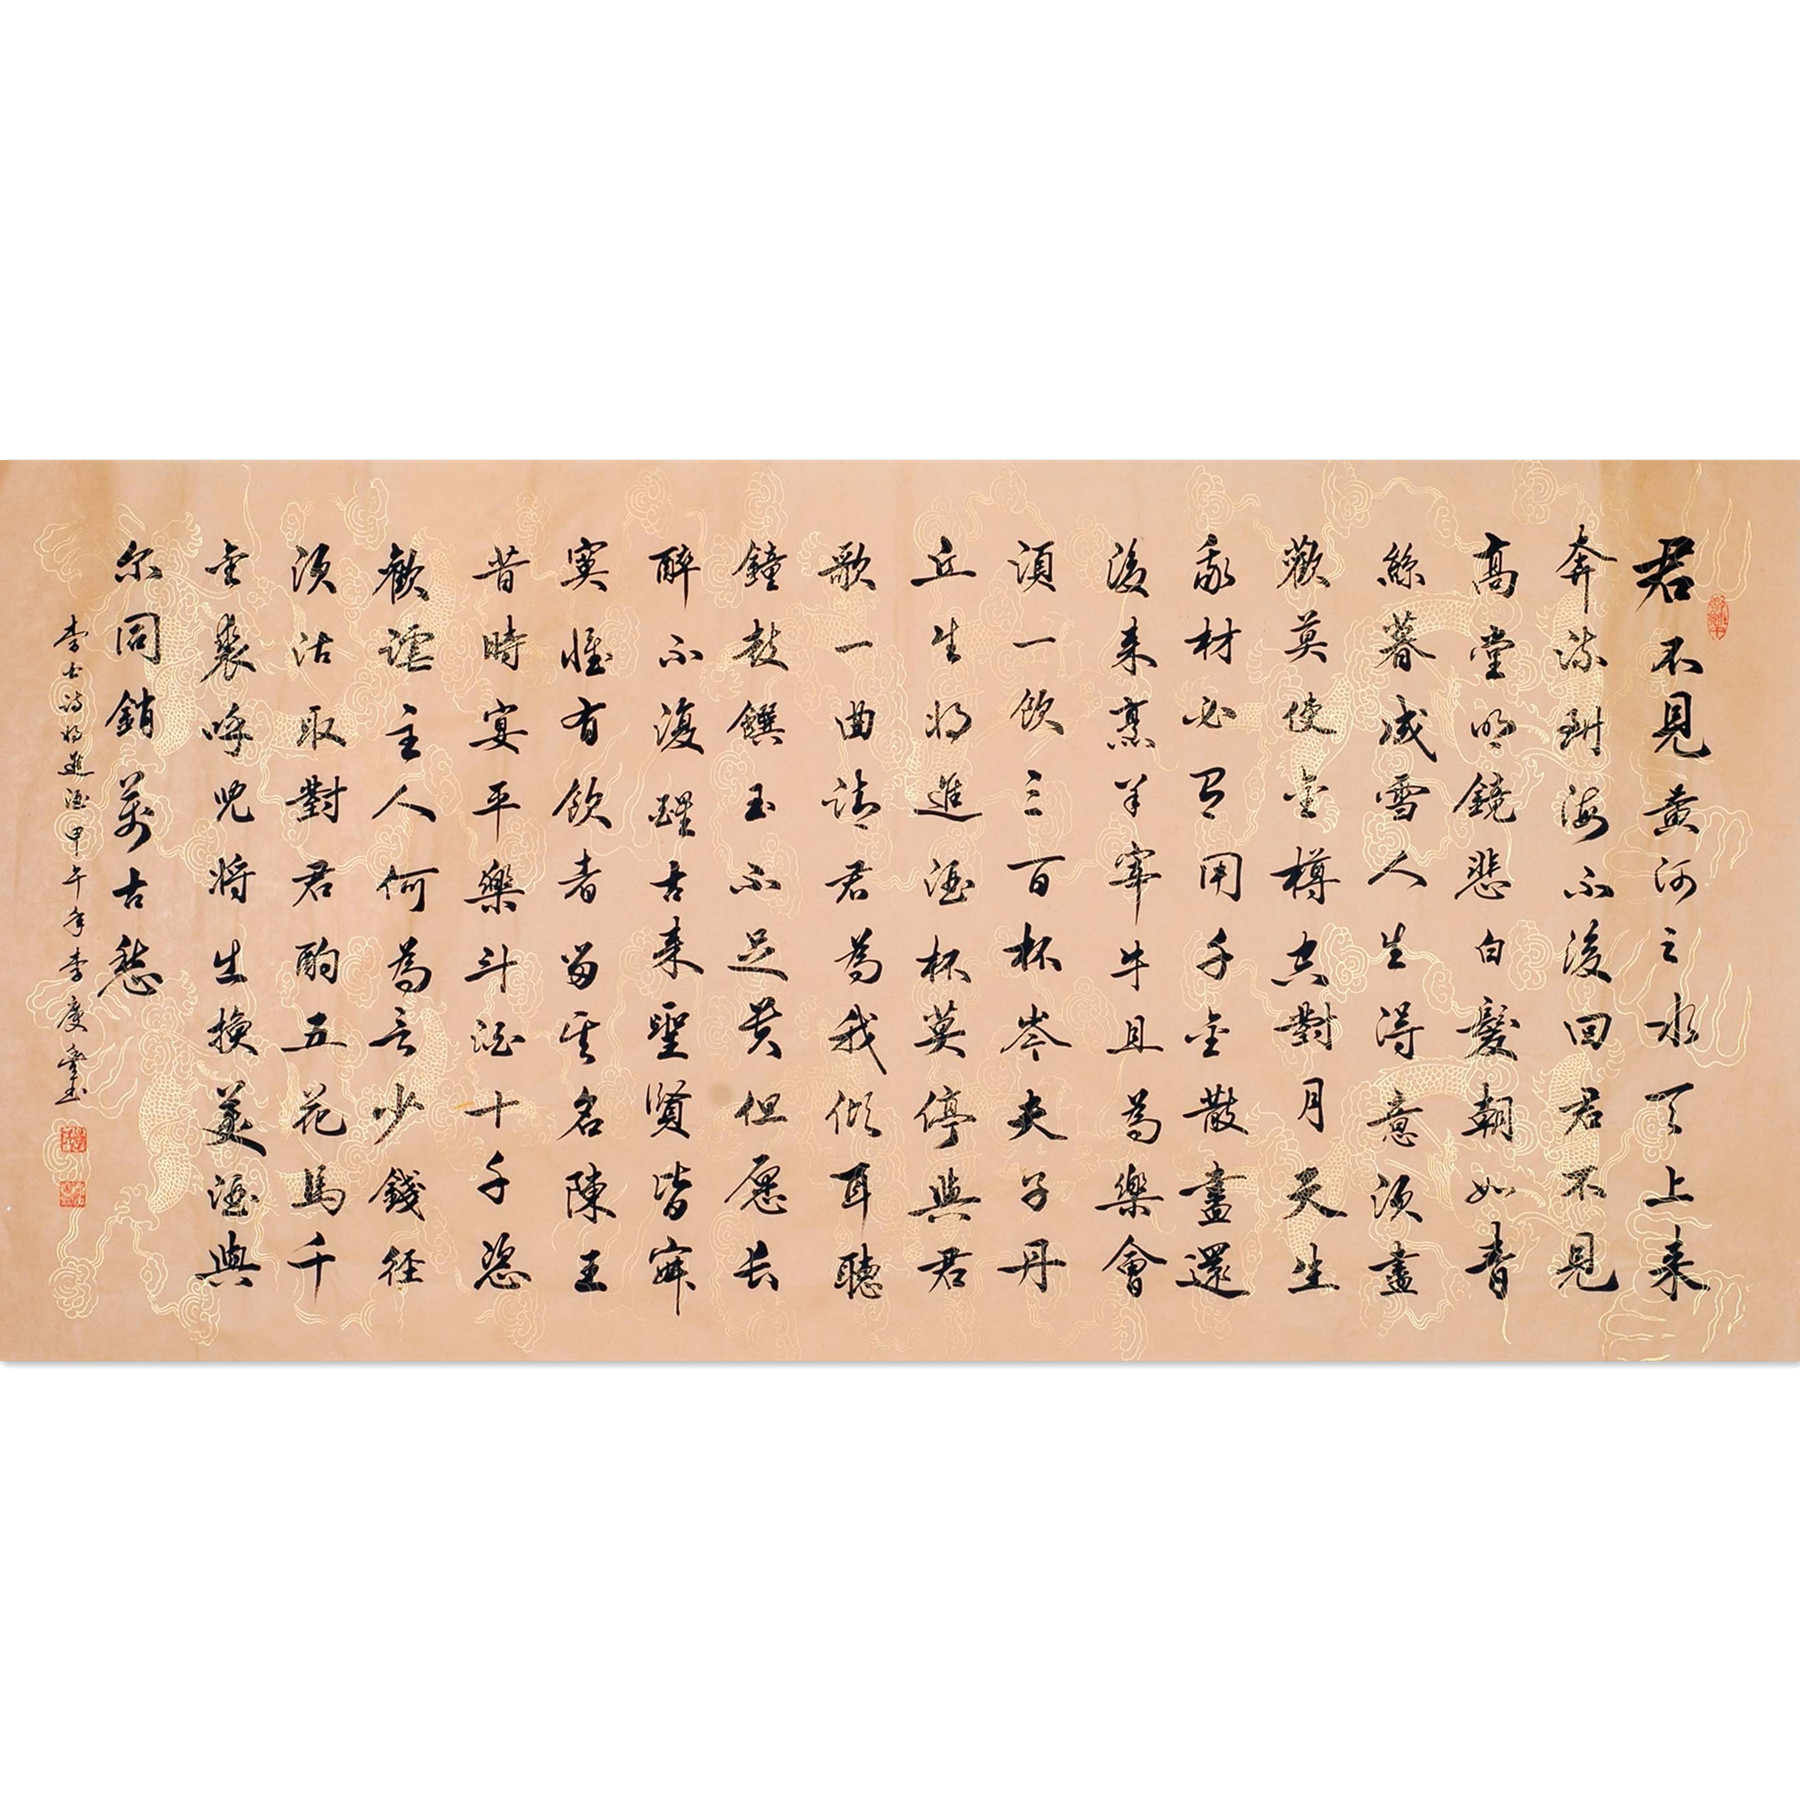 君不見黃河之水天上來
奔流到海不復回君不見
高堂明鏡悲白髮朝如青
絲暮成雪人生得意須盡
歡莫使金樽空對月天生
我材必有用千金散盡還
復來烹羊宰牛且為樂會
須一飲三百杯岑夫子丹
丘生將進酒杯莫停與君
歌一曲請君為我傾耳聽
鐘鼓饌玉不足貴但愿長
醉不復醒古來聖賢皆寂
寞惟有飲者留其名陳王
昔時宴平樂斗酒十千恣
歡謔主人何為言少錢徑
須沽取對君酌五花馬千
金裘呼兒將出換美酒與
尔同銷萬古愁
李白詩將進酒甲午年李慶